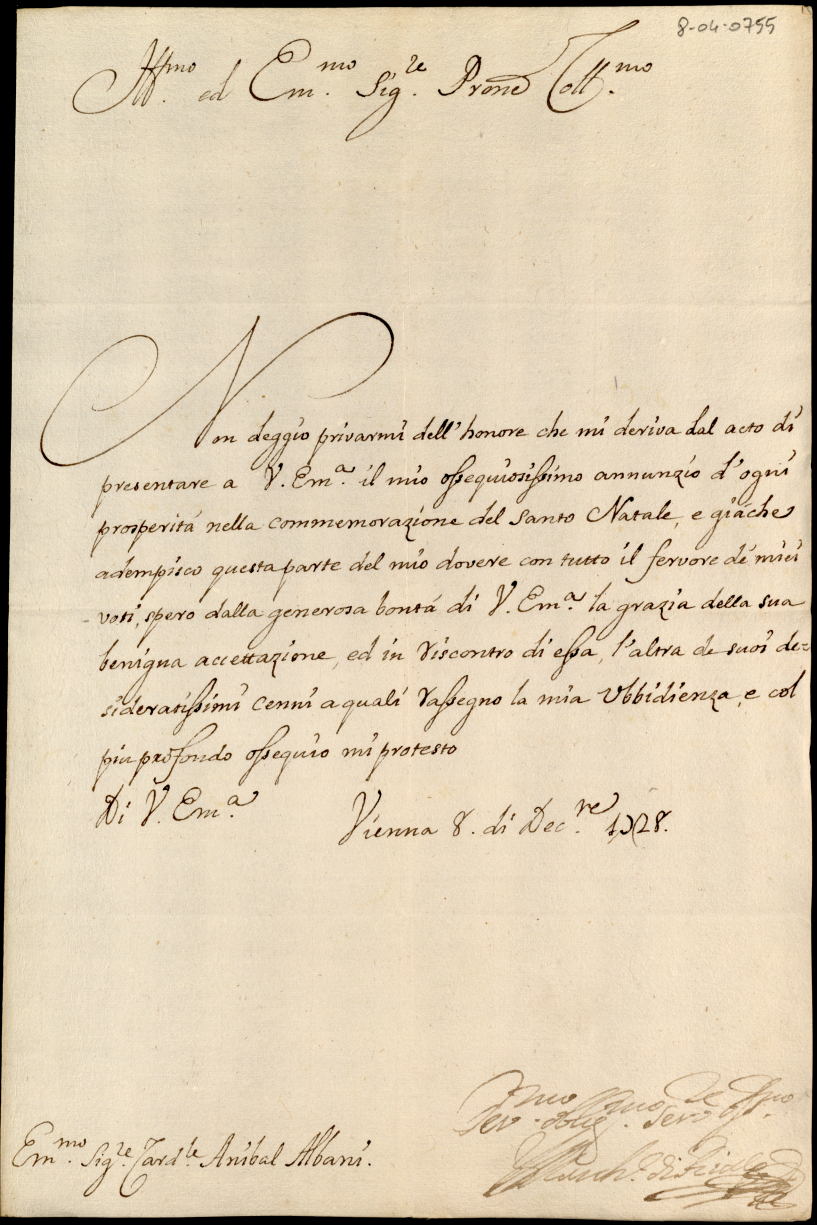 8-04-0755
Em.mo Sig.re Prone Coll.mo
Non deggio privarmi dell'honore che mi deriva dal acto di
presentare a V. Em.a il mio ossequiosissimo annunzio d'ogni
prosperitá nella commemorazione del Santo Natale, e giache
adempisco questa parte del mio dovere con tutto il fervore de miei
voti, spero dalla generosa bontá di V. Em.a la grazia della sua
benigna accettazione, ed in riscontro di essa, l'altra de suoi de=
sideratissimi cenni a quali rassegno la mia Ubbidienza, e col
piu profondo ossequio mi protesto
Di V. Em.a
Vienna 8. di Dec.re 1728.
Em.mo Sig.re Card.le Anibal Albani.